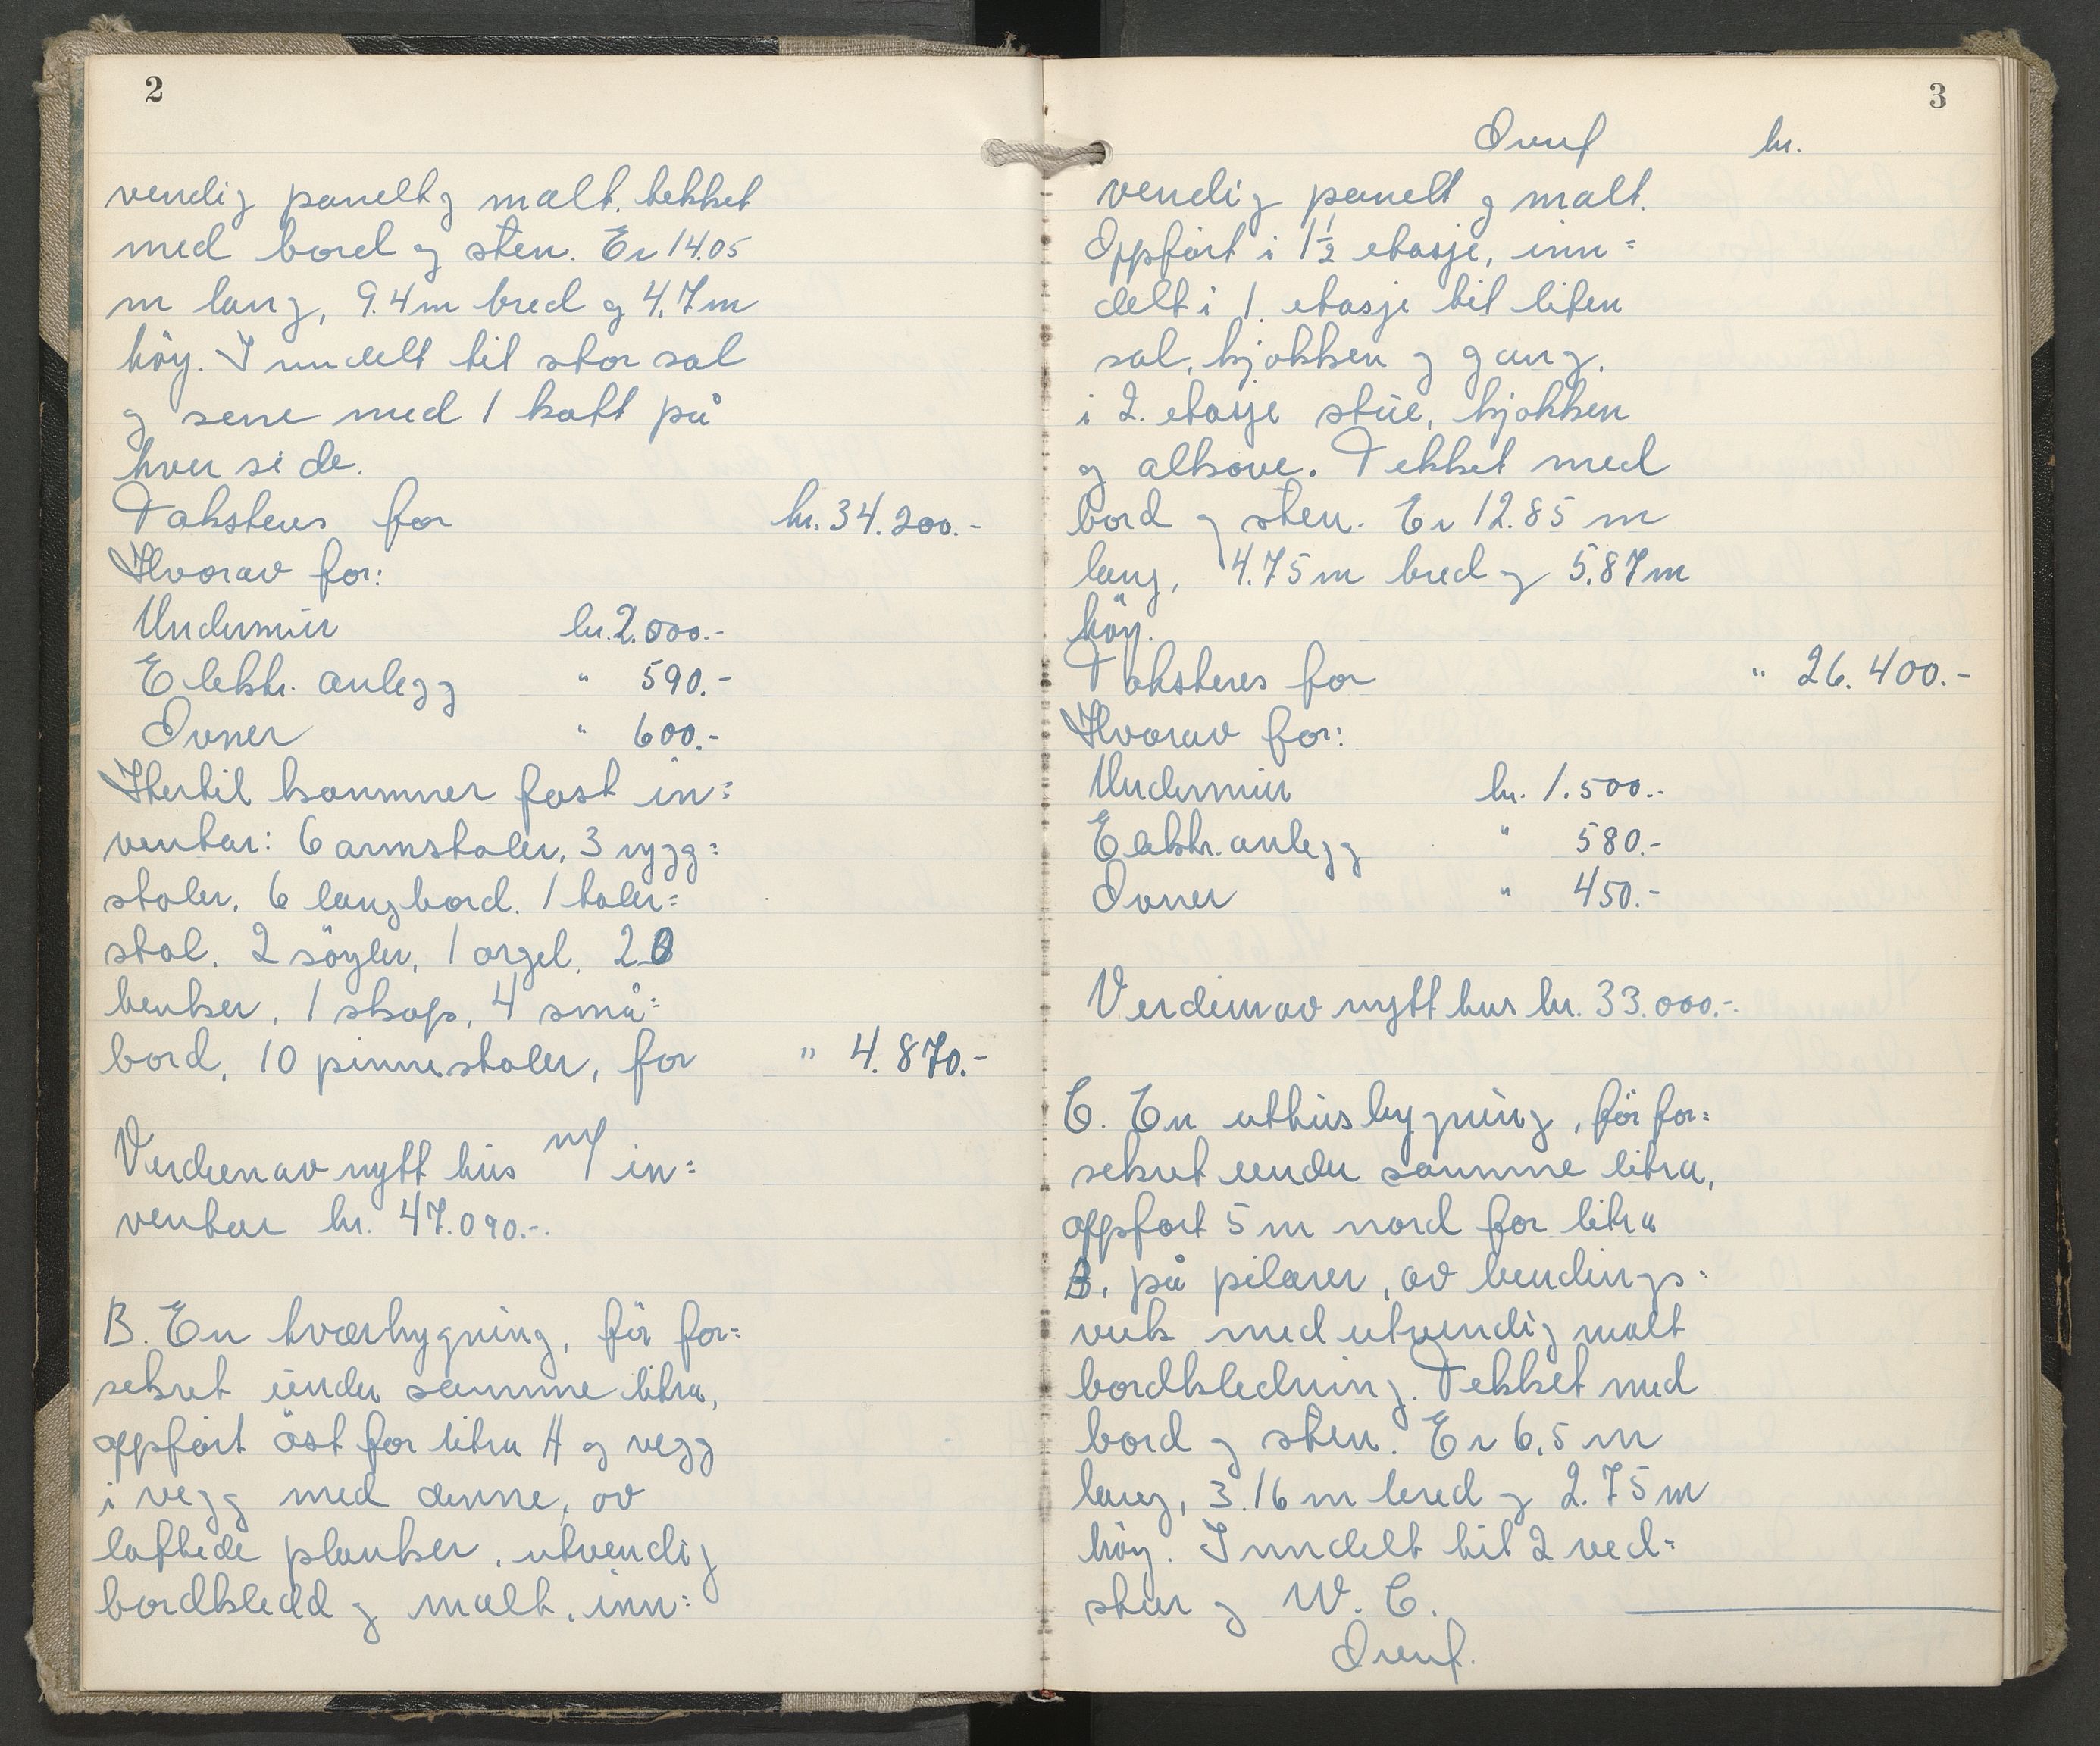 2
vendig panelt og malt. tekket
med bord og sten. Er 14.05
m lang, 9.4 m bred og 4,7 m
höy. Inndelt til stor sal
og sene med 1 kott på
hver side.
Taksteres for kr. 34.200.-
Hvorav for:
Undermur kr. 2.000.-
Elektr. anlegg " 590.-
Ovner " 600.-
Hertil kommer fast in=
ventar: 6 armstoler, 3 rygg=
stoler, 6 langbord. 1 taler=
stol. 2 söyler, 1 orgel, 20
benker, 1 skap, 4 små=
bord, 10 pinnestoler, for " 4.870.-
Verdien av nytt hus m/ in=
ventar kr. 47.090.-.
B. En tværbygning, för for=
sekret under samme litra,
oppfört öst for litra A og vegg
i vegg med denne, av
laftede planker, utvendig
bordkledd og malt, inn=
3
Overf kr.
vendig panelt og malt.
Oppfört i 1½ etasje, inn=
delt i 1. etasje til liten
sal, kjøkken og gang,
i 2. etasje stue, kjøkken
og alkove. Tekket med
bord og sten. Er 12.85 m
lang, 4.75 m bred og 5.87 m
höy.
Taksteres for " 26.400.-
Hvorav for:
Undermur kr. 1.500.-
Elektr. anlegg " 580.-
Ovner " 450.-
Verdien av nytt hus kr. 33.000.-.
C. En uthusbygning, för for=
sekret under samme litra,
oppfört 5 m nord for litra
B. på pilarer, av bindings=
verk med utvendig malt
bordkledning. Tekket med
bord og sten. Er 6,5 m
lang, 3.16 m bred og 2.75 m
höy. Inndelt til 2 ved=
skur og W. C.
Overf.